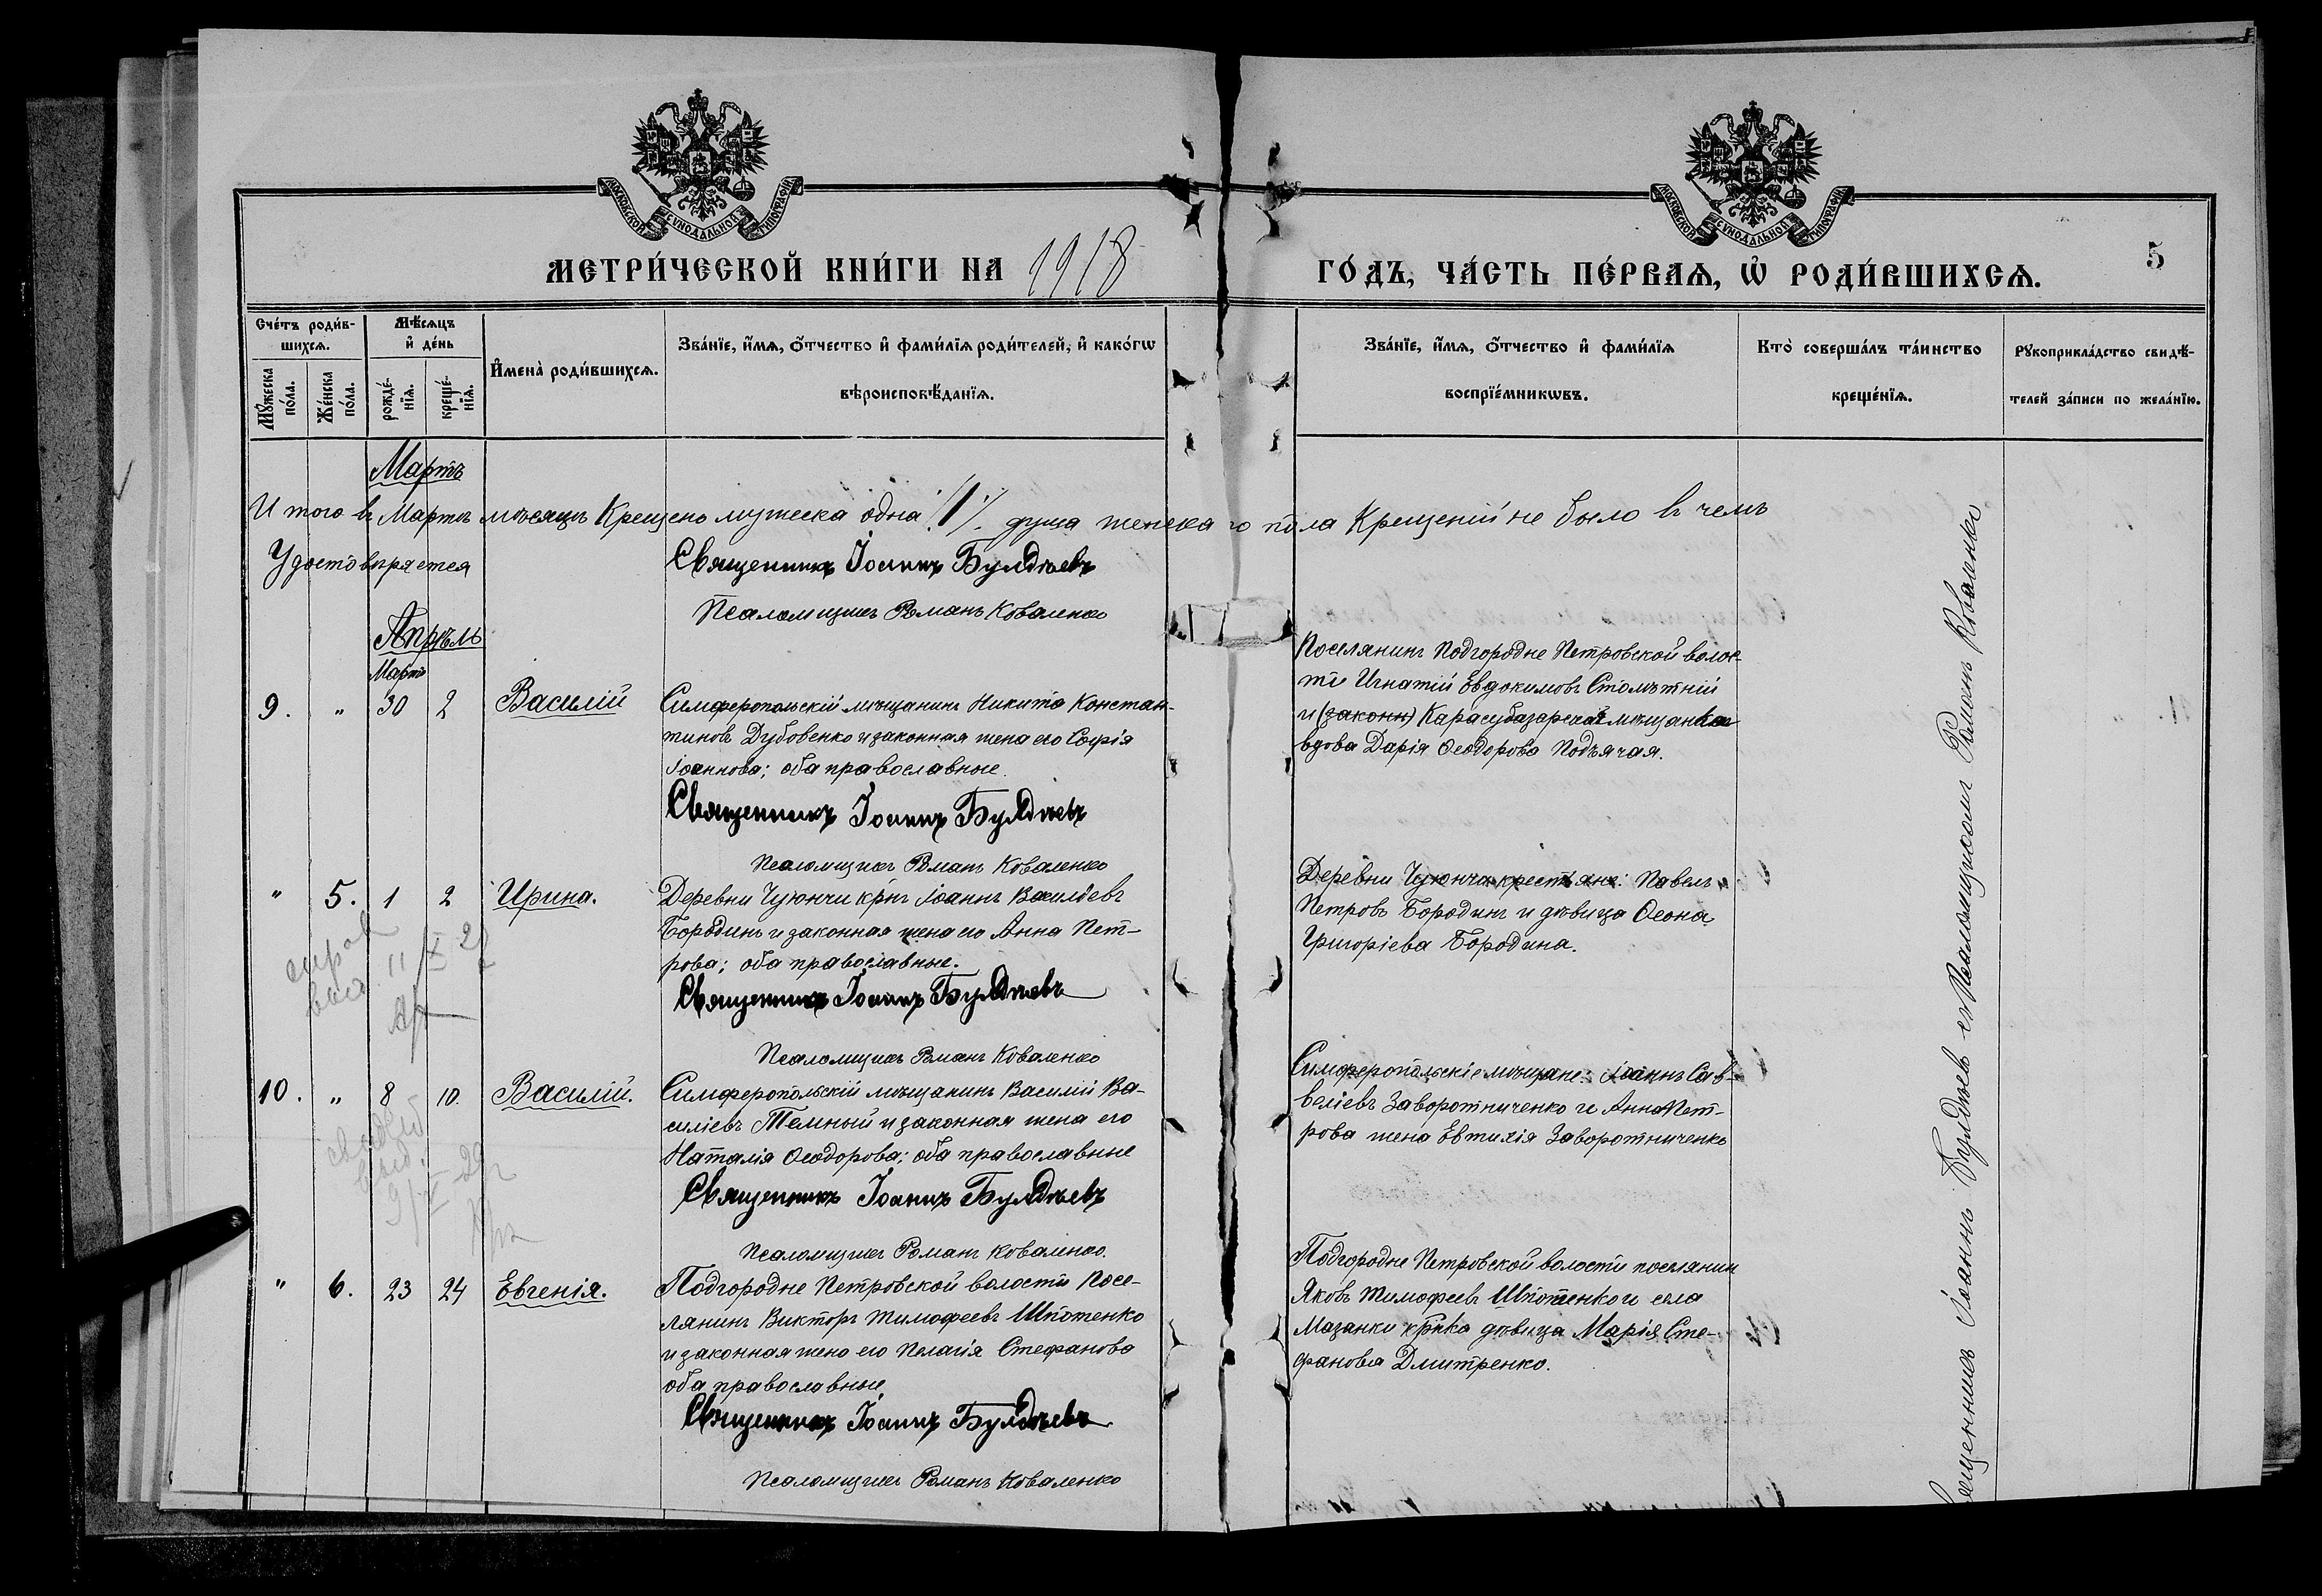 МОСКОВСКОЙ СѴНОДАЛЬНОЙ ТИПОГРАФІИ
МОСКОВСКОЙ СѴНОДАЛЬНОЙ ТИПОГРАФІИ
МЕТРИ́ЧЕСКОЙ КНИ́ГИ НА 1918
ГО́ДЪ, ЧА́СТЬ ПЕ́РВАѦ, Ѡ҆ РОДИ́ВШИХСѦ.
5
Сче́тъ роди́в-
шихсѧ.
Мꙋ́жеска по́ла.
Же́нска по́ла.
Мѣ́сѧцъ
и҆ де́нь
рожде́-
нїѧ.
креще́-
нїѧ.
И҆мена̀ роди́вшихсѧ.
Зва́нїе, и҆́мѧ, ѻ҆́тчество и҆ фами́лїѧ роди́телей, и҆ како́гѡ
вѣроисповѣ́данїѧ.
Зва́нїе, и҆́мѧ, ѻ҆́тчество и҆ фами́лїѧ
воспрїе́мникѡвъ.
Кто̀ соверша́лъ та́инство
креще́нїѧ.
Рꙋкоприкла́дство свидѣ́-
телей за́писи по жела́нїю.
Мартъ
Итого въ Мартѣ мѣсяцѣ Крещено мужеска одна /1/. душа женскаго пола Крещеній не было въ чемъ
Удостовѣряется
Священникъ Іоаннъ Булдѣевъ
Псаломщикъ Романъ Коваленко
Апрѣль
Мартъ
9. " 30 2 Василій
Симферопольскій мѣщанинъ Никита Констан-
тиновъ Дубовенко и законная жена его Софія
Іоаннова; оба православные.
Священникъ Іоаннъ Булдѣевъ
Псаломщикъ Романъ Коваленко
Поселянинъ Подгородне Петровской волос-
ти Игнатій Евдокимовъ Столѣтній
и (законн) Карасубазарская мѣщанка
вдова Дарія Ѳеодорова Подъячая.
" 5. 1 2 Ирина.
Деревни Чуюнчи кр̃нъ Іоаннъ Васильевъ
Бородинъ и законная жена его Анна Пет-
рова; оба православные.
Священникъ Іоаннъ Булдѣевъ
Псаломщикъ Романъ Коваленко
Деревни Чуюнчи крестьяне: Павелъ
Петровъ Бородинъ и дѣвица Ѳеона
Григоріева Бородина.
10. " 8 10. Василій.
Симферопольскій мѣщанинъ Василій Ва-
силіевъ Темный и законная жена его
Наталія Ѳеодорова; оба православные
Священникъ Іоаннъ Булдѣевъ
Псаломщикъ Романъ Коваленко.
Симферопольскіе мѣщане: Іоаннъ Сав-
веліевъ Заворотниченко и Анна Пет-
рова жена Евтихія Заворотниченко
" 6. 23 24 Евгенія.
Подгородне Петровской волости посе-
лянинъ Викторъ Тимофеевъ Шпотенко
и законная жена его Пелагія Стефанова
оба православные
Священникъ Іоаннъ Булдѣевъ
Псаломщикъ Романъ Коваленко
Подгородне Петровской волости поселянин
Яковъ Тимофеевъ Шпотенко и села
Мазанки кр̃нка дѣвица Марія Сте-
фанова Дмитренко.
Священникъ Іоаннъ Булдѣевъ съ Псаломщикомъ Романъ Коваленко